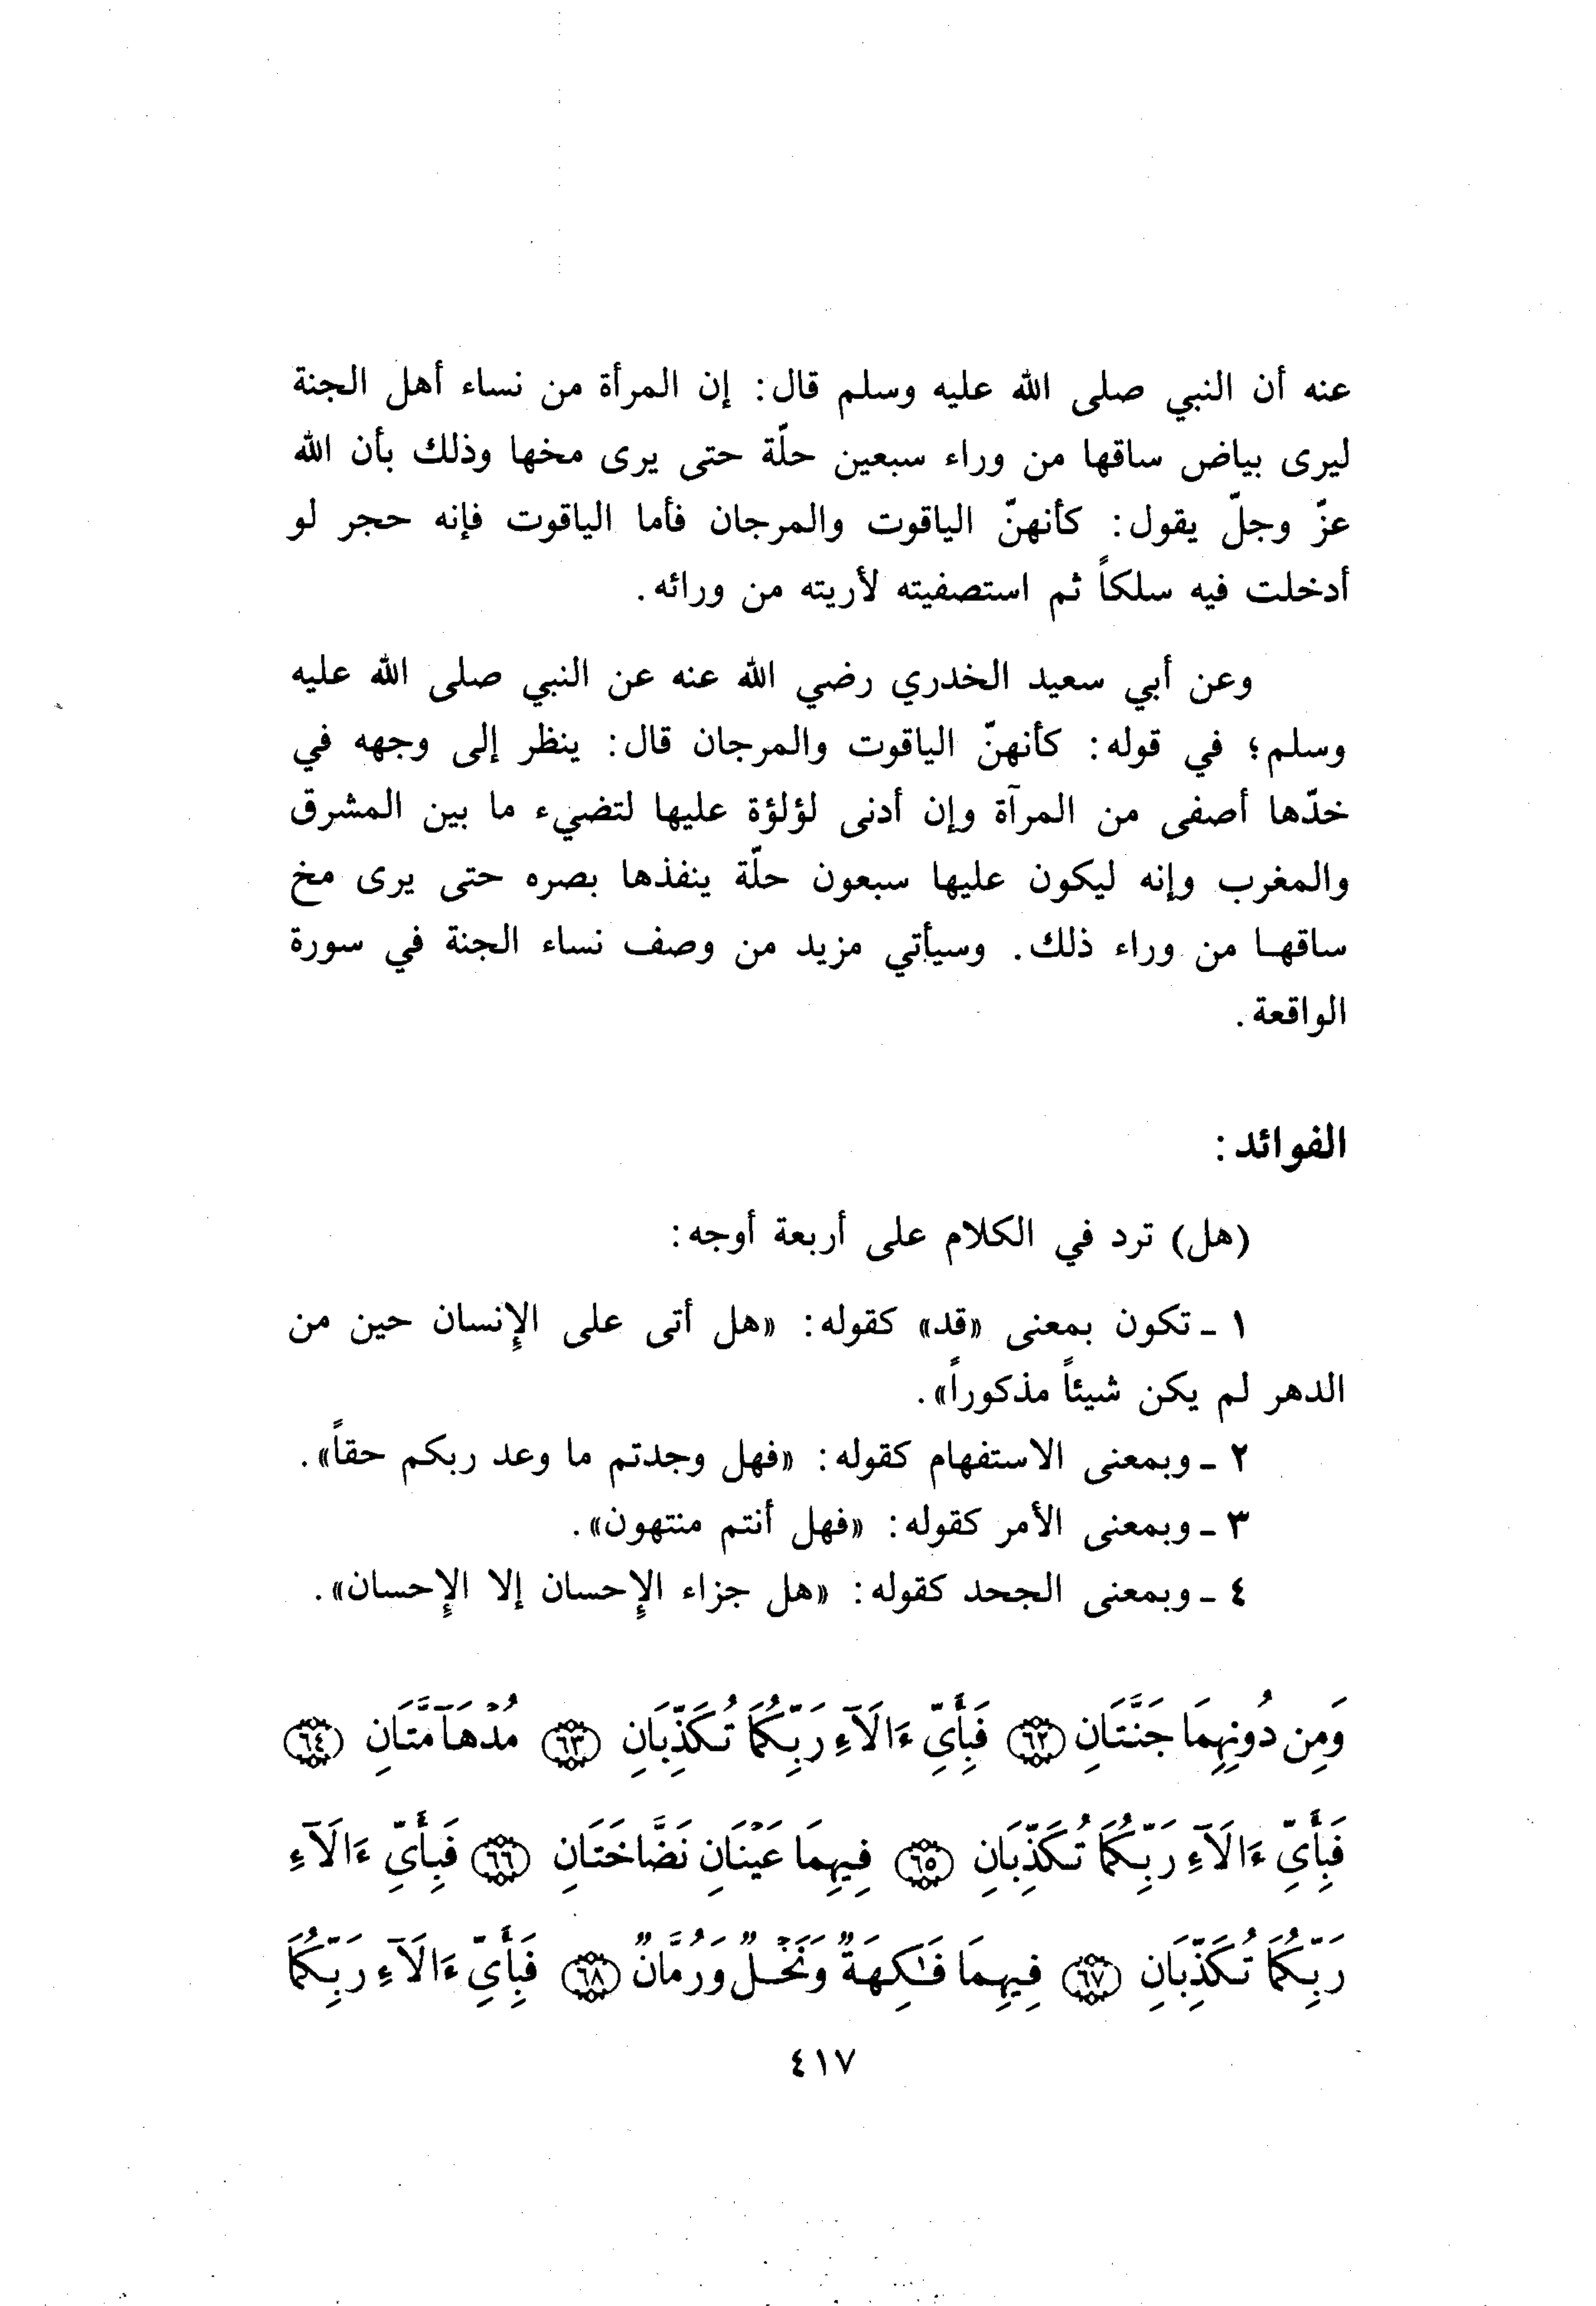 عنه أن النبي صلى الله عليه وسلم قال: إن المرأة من نساء أهل الجنة
ليرى بياض ساقها من وراء سبعين حلّة حتى يرى مخها وذلك بأن الله
عزّ وجلّ يقول: كأنهنّ الياقوت والمرجان فأما الياقوت فإنه حجر لو
أدخلت فيه سلكاً ثم استصفيته لأريته من ورائه.
وعن أبي سعيد الخدري رضي الله عنه عن النبي صلى الله عليه
وسلم؛ في قوله: كأنهنّ الياقوت والمرجان قال: ينظر إلى وجهه في
خدّها أصفى من المرآة وإن أدنى لؤلؤة عليها لتضيء ما بين المشرق
والمغرب وإنه ليكون عليها سبعون حلّة ينفذها بصره حتى يرى مخ
ساقها من وراء ذلك. وسيأتي مزيد من وصف نساء الجنة في سورة
الواقعة.
الفوائد:
(هل) ترد في الكلام على أربعة أوجه:
١ - تكون بمعنى «قد» كقوله: «هل أتى على الإنسان حين من
الدهر لم يكن شيئاً مذكوراً».
٢ - وبمعنى الاستفهام كقوله: «فهل وجدتم ما وعد ربكم حقاً».
٣ - وبمعنى الأمر كقوله: «فهل أنتم منتهون».
٤ - وبمعنى الجحد كقوله: «هل جزاء الإحسان إلا الإحسان».
وَمِن دُونِهِمَا جَنَّتَانِ ٦٢ فَبِأَيِّ ءَالَآءِ رَبِّكُمَا تُكَذِّبَانِ ٦٣ مُدْهَآمَّتَانِ ٦٤
فَبِأَيِّ ءَالَآءِ رَبِّكُمَا تُكَذِّبَانِ ٦٥ فِيهِمَا عَيْنَانِ نَضَّاخَتَانِ ٦٦ فَبِأَيِّ ءَالَآءِ
رَبِّكُمَا تُكَذِّبَانِ ٦٧ فِيهِمَا فَٰكِهَةٌ وَنَخْلٌ وَرُمَّانٌ ٦٨ فَبِأَيِّ ءَالَآءِ رَبِّكُمَا
٤١٧